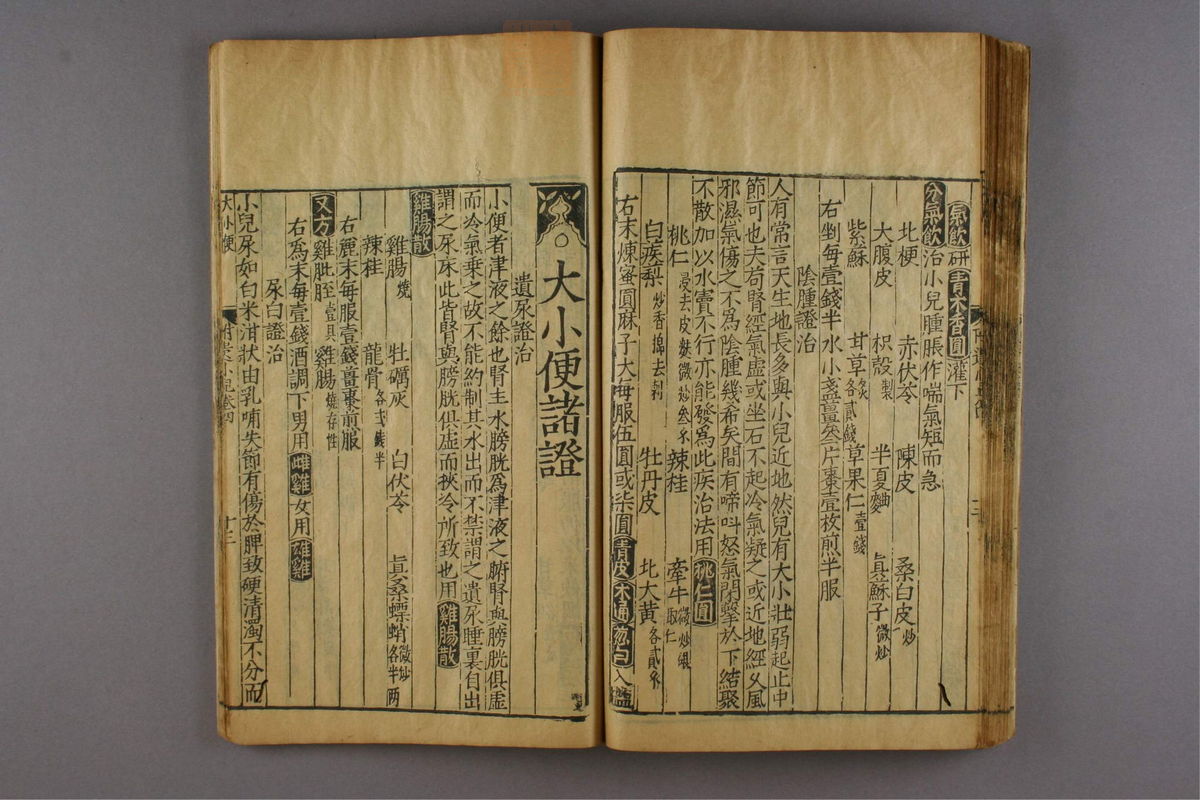 氣飲研青木香圓灌下
分氣飲治小兒腫脹作喘氣短而急
北梗 赤伏苓 陳皮 桑白皮炒
大腹皮 枳殼製 半夏麯 真蘇子微炒
紫蘇 甘草炙各貳錢 草果仁壹錢
右剉每壹錢半水小盞薑叁片棗壹枚煎半服
陰腫證治
人有常言天生地長多與小兒近地然兒有大小壯弱起止中
節可也夫苟腎經氣虛或坐石不起冷氣凝之或近地經久風
邪濕氣傷之不爲陰腫幾希矣間有啼叫怒氣閉擊於下結聚
不散加以水竇不行亦能發爲此疾治法用桃仁圓
桃仁浸去皮麩微炒叁錢 辣桂 牽牛微炒取仁
白蒺梨炒香搗去刺 牡丹皮 北大黃各貳錢
右末煉蜜圓麻子大每服伍圓或柒圓青皮木通葱白入鹽
大小便諸證
遺尿證治
小便者津液之餘也腎主水膀胱爲津液之腑腎與膀胱俱虛
而冷氣乗之故不能約制其水出而不禁謂之遺尿睡裏自出
謂之尿床此皆腎與膀胱俱虛而挾冷所致也用雞腸散
雞腸散
雞腸燒 牡礪灰 白伏苓 真桑螵蛸微炒各半兩
辣桂 龍骨各貳錢半
右麄末每服壹錢薑棗煎服
又方雞肶胵壹具 雞腸燒存性
右爲末每壹錢酒調下男用雌雞女用雄雞
尿白證治
小兒尿如白米泔狀由乳哺失節有傷於脾致硬清濁不分而
大小便
十三